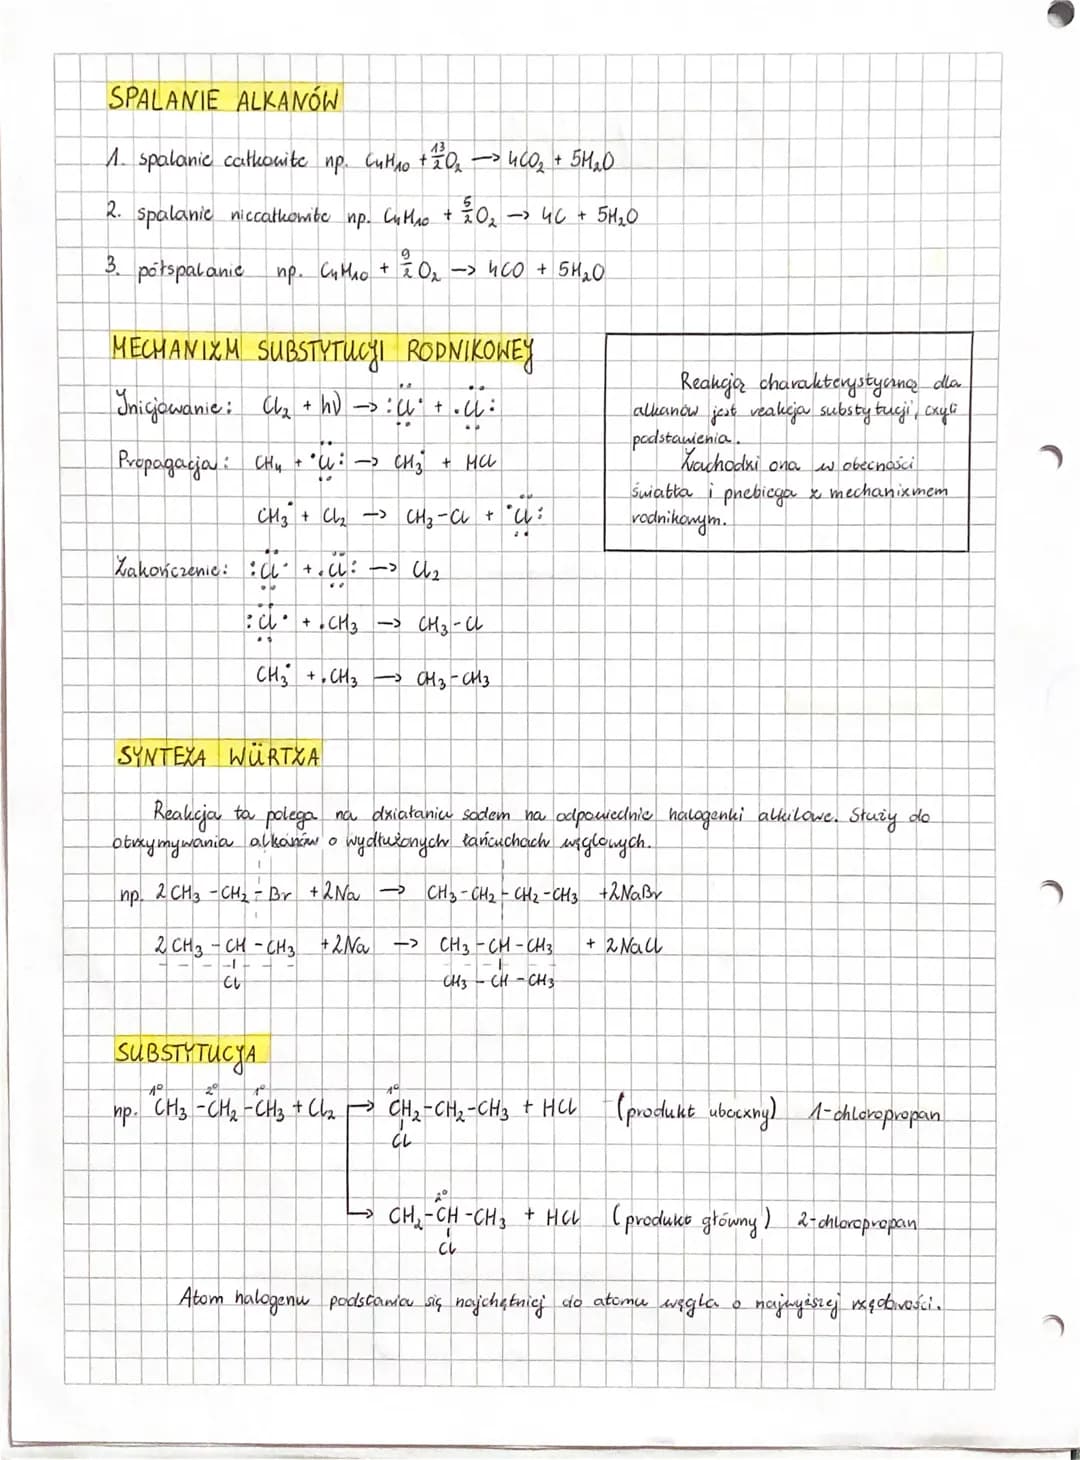 SPALANIE ALKANÓW
1. spalanie całkowite np. C₄H₁₀ + 13/2 O₂ → 4CO₂ + 5H₂O
2. spalanie niecałkowite np. C₄H₁₀ + 5/2 O₂ → 4C + 5H₂O
3. półspalanie np. C₄H₁₀ + 9/2 O₂ → 4CO + 5H₂O
MECHANIZM SUBSTYTUCJI RODNIKOWEJ
Inicjowanie: Cl₂ + hν → :Cl· + ·Cl:
Propagacja: CH₄ + ·Cl: → CH₃· + HCl
CH₃· + Cl₂ → CH₃-Cl + ·Cl:
Zakończenie: :Cl· + ·Cl: → Cl₂
:Cl· + ·CH₃ → CH₃-Cl
CH₃· + ·CH₃ → CH₃-CH₃
Reakcją charakterystyczną dla
alkanów jest reakcja substytucji, czyli
podstawienia.
Zachodzi ona w obecności
światła i przebiega z mechanizmem
rodnikowym.
SYNTEZA WÜRTZA
Reakcja ta polega na działaniu sodem na odpowiednie halogenki alkilowe. Służy do
otrzymywania alkanów o wydłużonych łańcuchach węglowych.
np. 2 CH₃-CH₂-Br + 2Na → CH₃-CH₂-CH₂-CH₃ + 2NaBr
2 CH₃-CH-CH₃ + 2Na → CH₃-CH-CH₃ + 2NaCl
Cl CH₃-CH-CH₃
SUBSTYTUCJA
1° 2° 1° 1°
np. CH₃-CH₂-CH₃ + Cl₂ → CH₂-CH₂-CH₃ + HCl (produkt uboczny) 1-chloropropan
Cl
2°
→ CH₂-CH-CH₃ + HCl (produkt główny) 2-chloropropan
Cl
Atom halogenu podstawia się najchętniej do atomu węgla o najwyższej rzędowości.